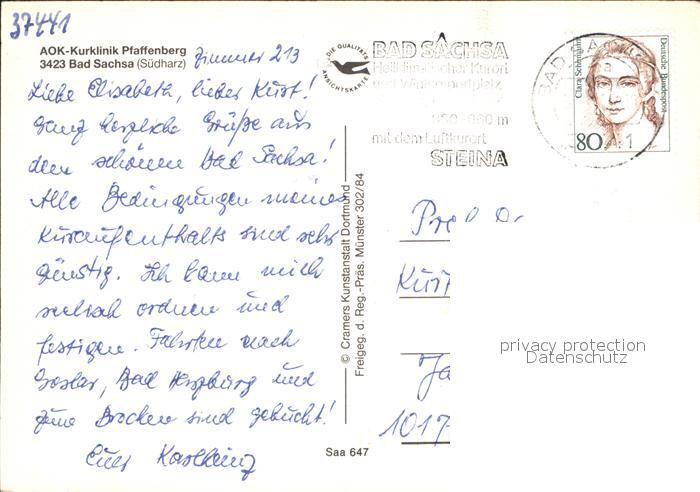 37441
AOK-Kurklinik Pfaffenberg
3423 Bad Sachsa (Südharz)
Zimmer 213
Liebe Elisabeth, lieber Kurt!
Ganz herzliche Grüße aus
dem schönen Bad Sachsa!
Alle Bedingungen meines
Kuraufenthalts sind sehr
günstig. Ich kann mich
seelisch ordnen und
festigen. Fahrten nach
Goslar, Bad Harzburg und
zum Brocken sind gebucht!
Euer Karlheinz
DIE QUALITÄTS
ANSICHTSKARTE
BAD SACHSA
Heilklimatischer Kurort
Wintersportplatz
mit dem Luftkurort
STEINA
BAD SACHSA
Clara Schumann
Deutsche Bundespost
80
© Cramers Kunstanstalt Dortmund
Freigeg. d. Reg.-Präs. Münster 302/84
Saa 647
Kurt
Ja
1017
privacy protection
Datenschutz